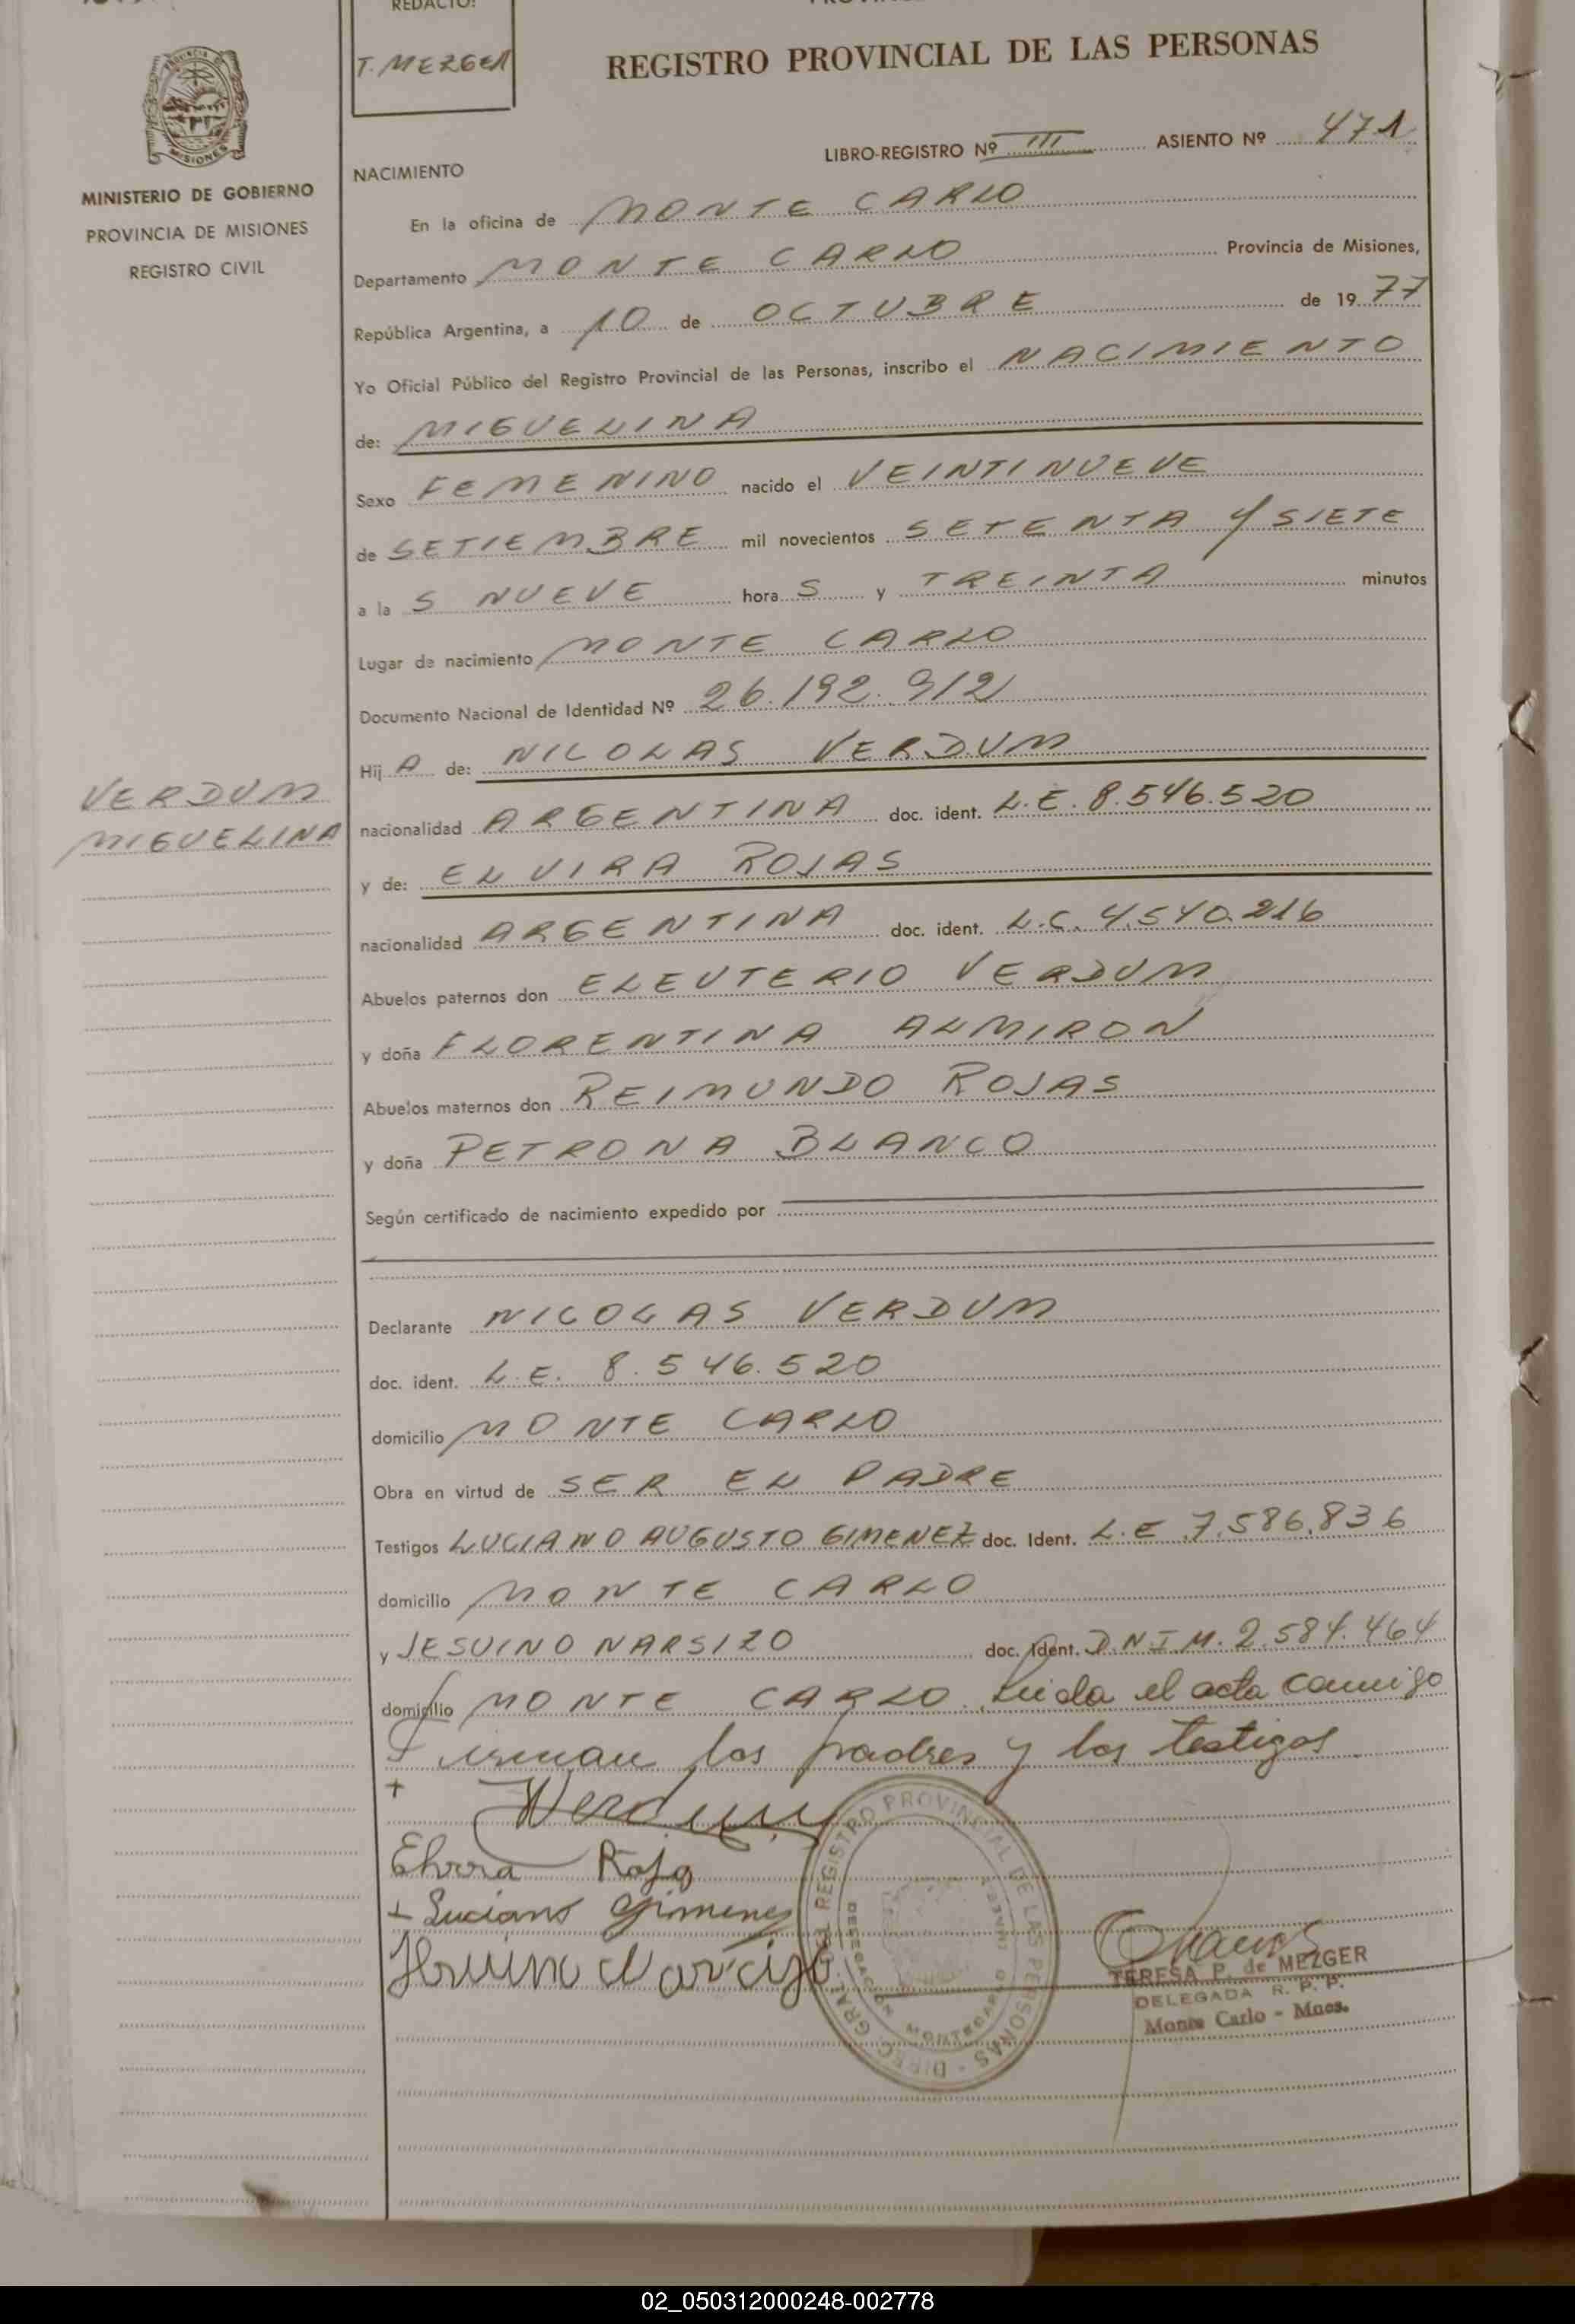 REDACTO:
T. MEZGER
REGISTRO PROVINCIAL DE LAS PERSONAS
MISIONES
MINISTERIO DE GOBIERNO
PROVINCIA DE MISIONES
REGISTRO CIVIL
LIBRO-REGISTRO Nº III ASIENTO Nº 471
NACIMIENTO
En la oficina de MONTE CARLO
Departamento MONTE CARLO Provincia de Misiones,
República Argentina, a 10 de OCTUBRE de 1977
Yo Oficial Público del Registro Provincial de las Personas, inscribo el NACIMIENTO
de: MIGUELINA
Sexo FEMENINO nacido el VEINTINUEVE
de SETIEMBRE mil novecientos SETENTA Y SIETE
a la S NUEVE hora S y TREINTA minutos
Lugar de nacimiento MONTE CARLO
Documento Nacional de Identidad Nº 26.192.912
Hij A de: NICOLAS VERDUM
VERDUM
MIGUELINA
nacionalidad ARGENTINA doc. ident. L.E. 8.546.520
y de: ELVIRA ROJAS
nacionalidad ARGENTINA doc. ident. L.C. 4.540.216
Abuelos paternos don ELEUTERIO VERDUM
y doña FLORENTINA ALMIRON
Abuelos maternos don REIMUNDO ROJAS
y doña PETRONA BLANCO
Según certificado de nacimiento expedido por
Declarante NICOLAS VERDUM
doc. ident. L.E. 8.546.520
domicilio MONTE CARLO
Obra en virtud de SER EL PADRE
Testigos LUCIANO AUGUSTO GIMENEZ doc. Ident. L.E 7.586.836
domicilio MONTE CARLO
y JESUINO NARSIZO doc. Ident. D.N.I M. 2.584.464
domicilio MONTE CARLO. Leida el acta conmigo
Firman los padres y los testigos
+ Verdum
Elvira Roja
+ Luciano Gimenez
Narcizo
DIREC. GRAL. REGISTRO PROVINCIAL DE LAS PERSONAS
DELEGACION MONTECARLO
TERESA P. de MEZGER
DELEGADA R. P. P.
Monte Carlo - Mnes.
02_050312000248-002778